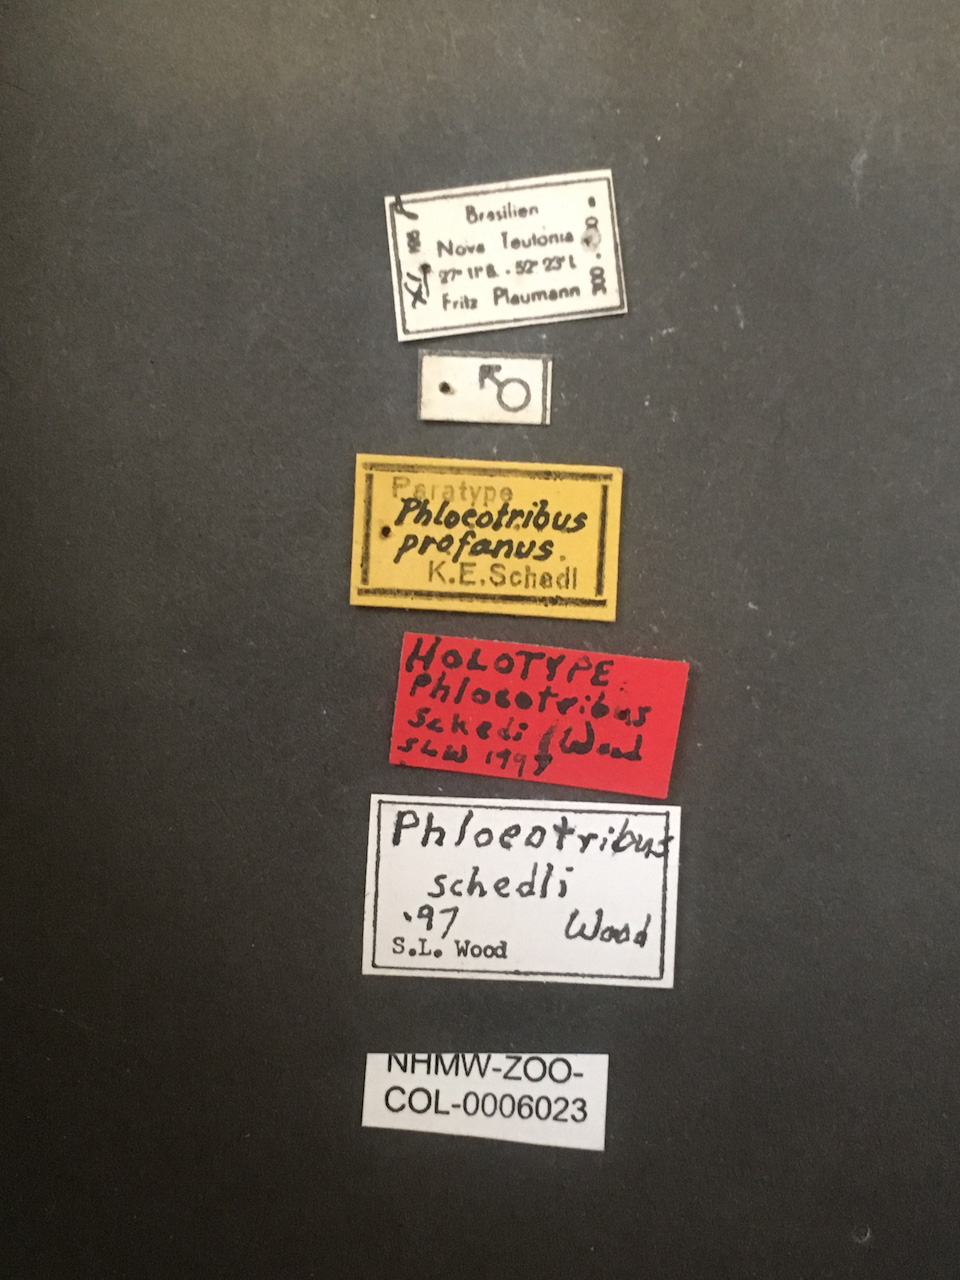 Brasilien
Nova Teutonia
27° 11' B. - 52° 23' L
Fritz Plaumann
XI
♂
Paratype
Phloeotribus
profanus.
K.E.Schedl
HOLOTYPE
Phloeotribus
schedli Wood
SLW 1997
Phloeotribus
schedli
'97 Wood
S.L. Wood
NHMW-ZOO-
COL-0006023